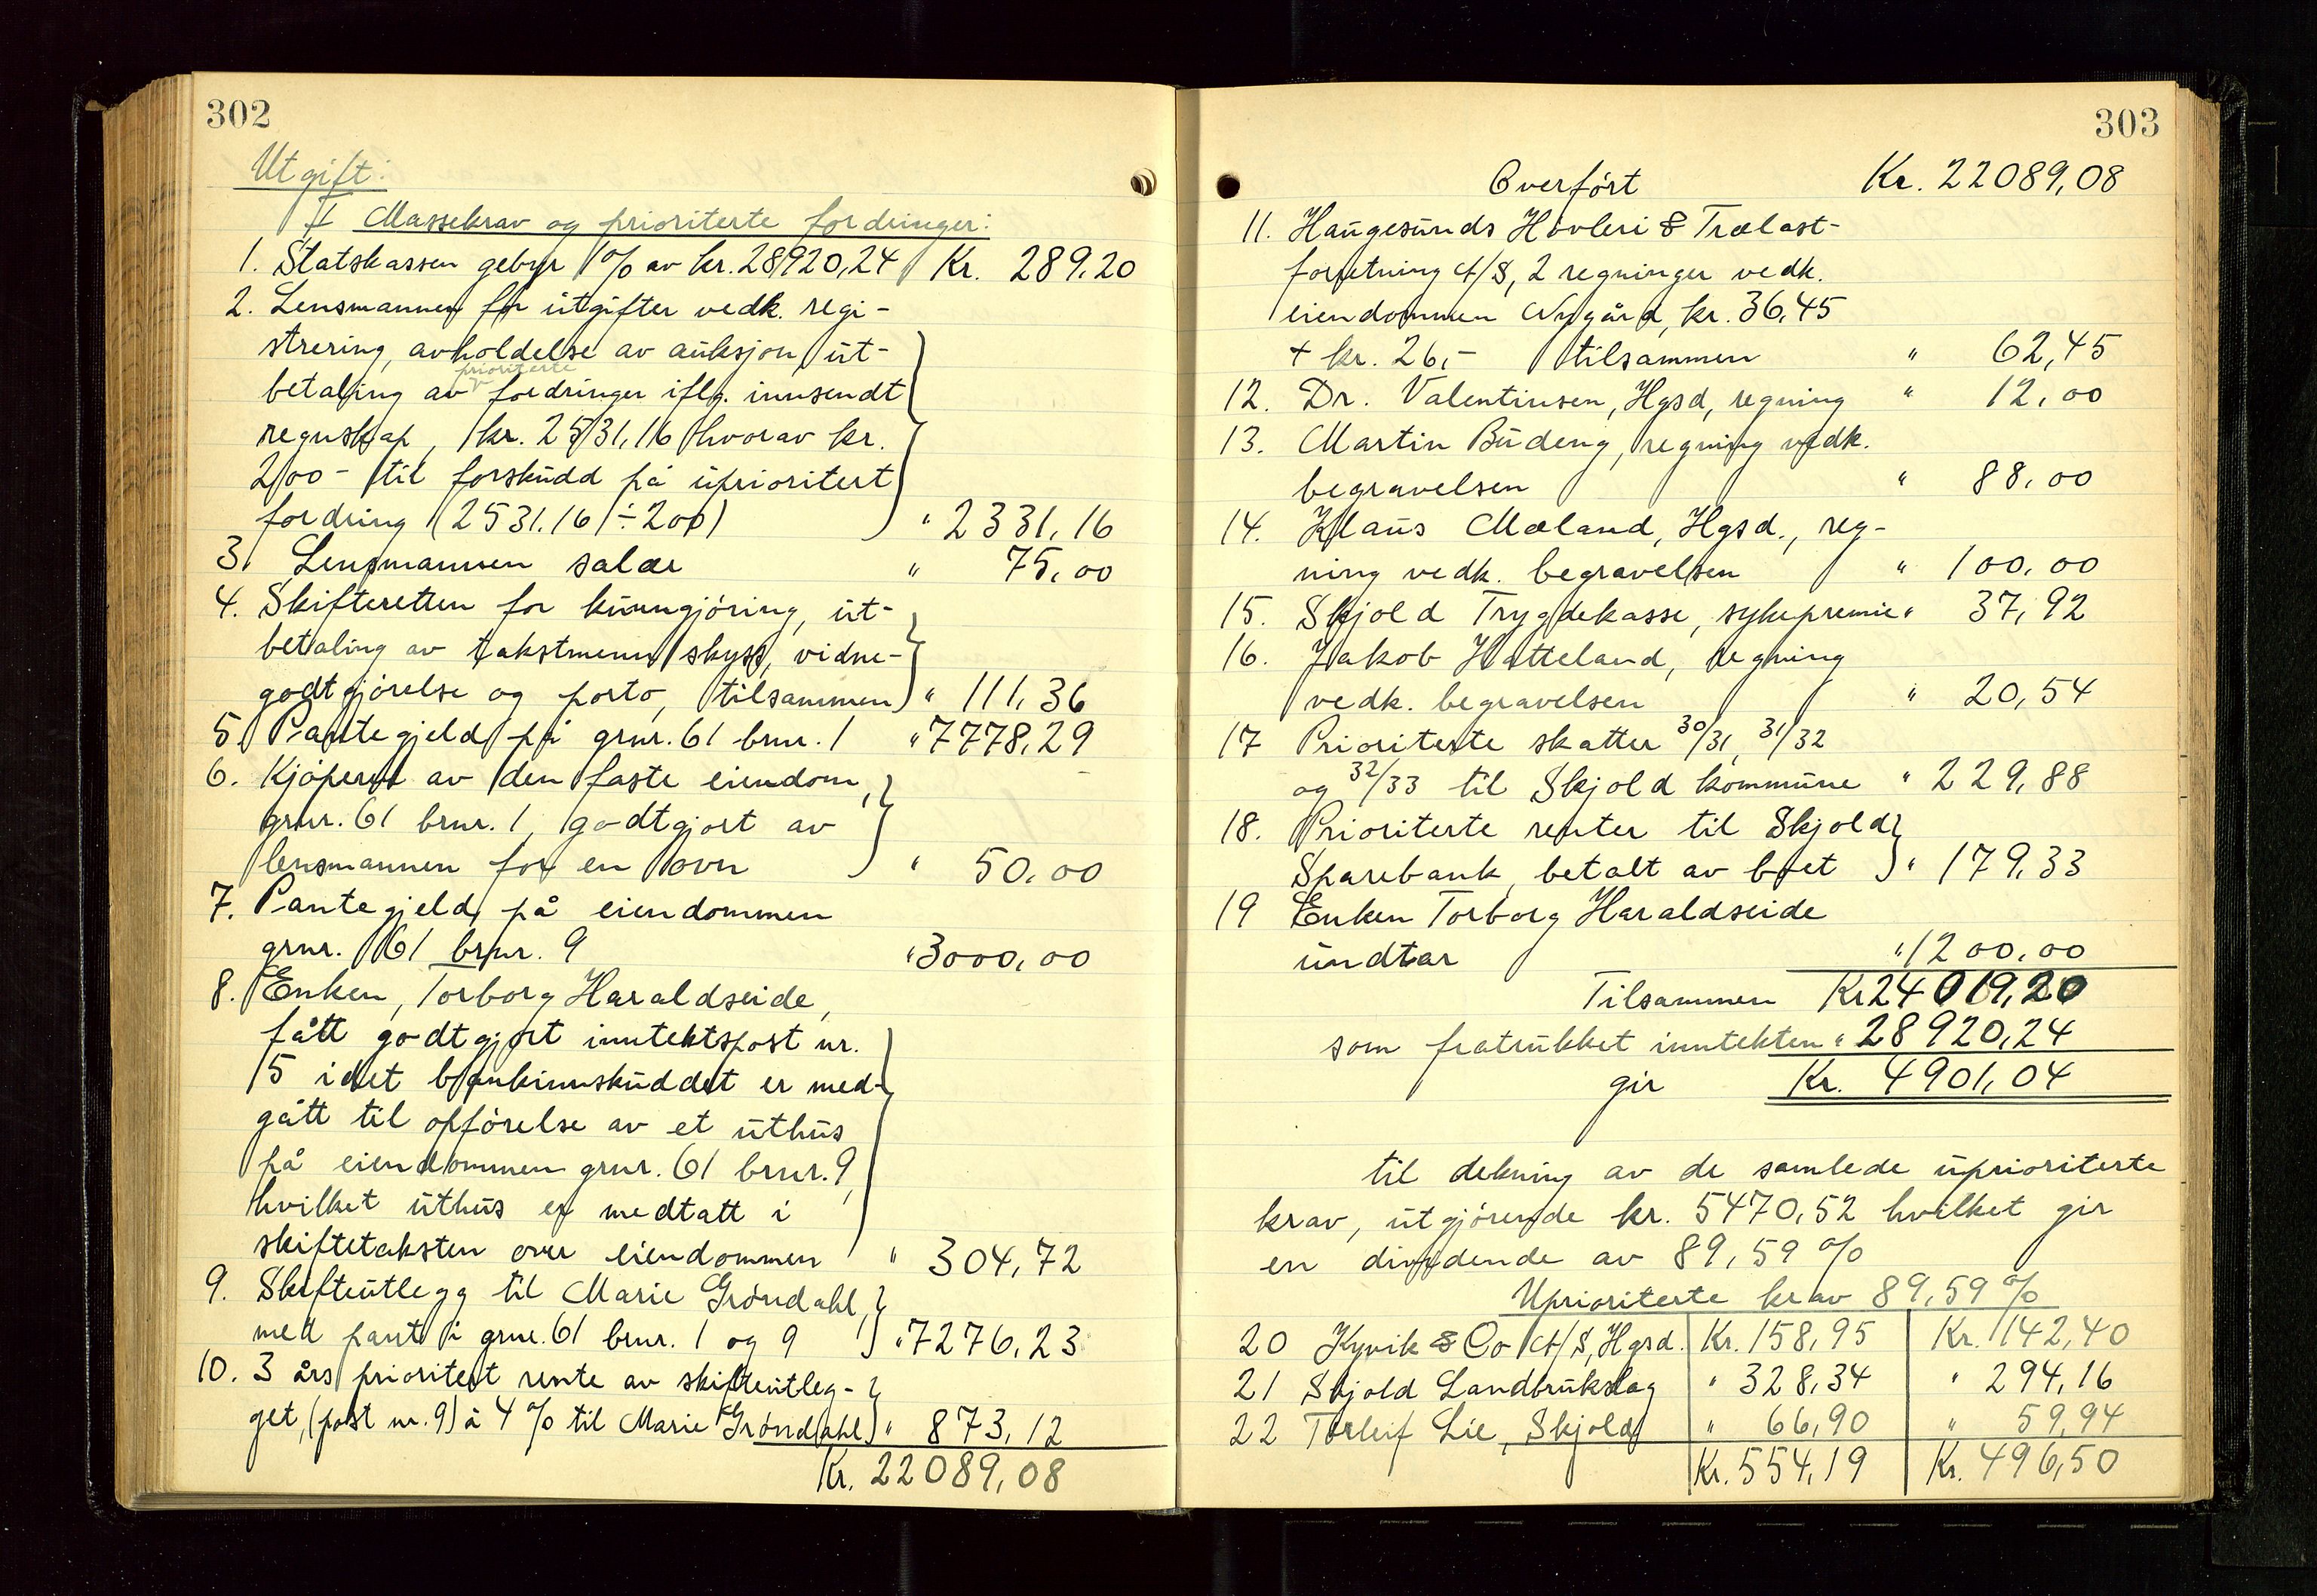 302
Utgift:
I Massekrav og prioriterte fordringer:
1. Statskassen gebyr 1% av kr. 28920,24 Kr. 289,20
2. Lensmannen for utgifter vedk. regi-
strering, avholdelse av auksjon, ut-
prioriterte
betaling av fordringer iflg. innsendt
regnskap, kr. 2531,16 hvorav kr.
200- til forskudd på uprioritert
fordring (2531.16 ÷ 200) " 2331,16
3. Lensmannen salær " 75,00
4. Skifteretten for kunngjöring, ut-
betaling av takstmenn, skyss, vidne-
godtgjörelse og porto, tilsammen " 111,36
5. Pantegjeld på grnr. 61 brnr. 1 " 7778,29
6. Kjöperne av den faste eiendom,
grnr. 61 brnr. 1, godtgjort av
lensmannen for en ovn " 50,00
7. Pantegjeld på eiendommen
grnr. 61 brnr. 9 " 3000,00
8. Enken, Torborg Haraldseide,
fått godtgjort inntektspost nr.
5 idet bankinnskuddet er med-
gått til opförelse av et uthus
på eiendommen grnr. 61 brnr. 9,
hvilket uthus er medtatt i
skiftetaksten over eiendommen " 304,72
9. Skifteutlegg til Marie Gröndahl,
med pant i grnr. 61 brnr. 1 og 9 " 7276,23
10. 3 års prioritert rente av skifteutleg-
get, (post nr. 9) à 4% til Marie Gröndahl " 873,12
Kr. 22089,08
303
Overfört Kr. 22089,08
11. Haugesunds Hövleri & Trælast-
forretning A/S, 2 regninger vedk.
eiendommen Nygård, kr. 36,45
+ kr. 26,- tilsammen " 62,45
12. Dr. Valentinsen, Hgsd, regning " 12,00
13. Martin Budeng, regning vedk.
begravelsen " 88,00
14. Klaus Mæland, Hgsd., reg-
ning vedk. begravelsen " 100,00
15. Skjold Trygdekasse, sykepremie " 37,92
16. Jakob Hatteland, regning
vedk. begravelsen " 20,54
17 Prioriterte skatter 30/31, 31/32
og 32/33 til Skjold kommune " 229,88
18. Prioriterte renter til Skjold
Sparebank, betalt av boet " 179,33
19 Enken Torborg Haraldseide
undtar " 1200,00
Tilsammen Kr 24019,20
som fratrukket inntekten " 28920,24
gir Kr. 4901,04
til dekning av de samlede uprioriterte
krav, utgjörende kr. 5470,52 hvilket gir
en dividende av 89,59%
Uprioriterte krav 89,59%
20 Kyvik & Co A/S, Hgsd. Kr. 158,95 Kr. 142,40
21 Skjold Landbrukslag " 328,34 " 294,16
22 Torleif Lie, Skjold " 66,90 " 59,94
Kr. 554,19 Kr. 496,50